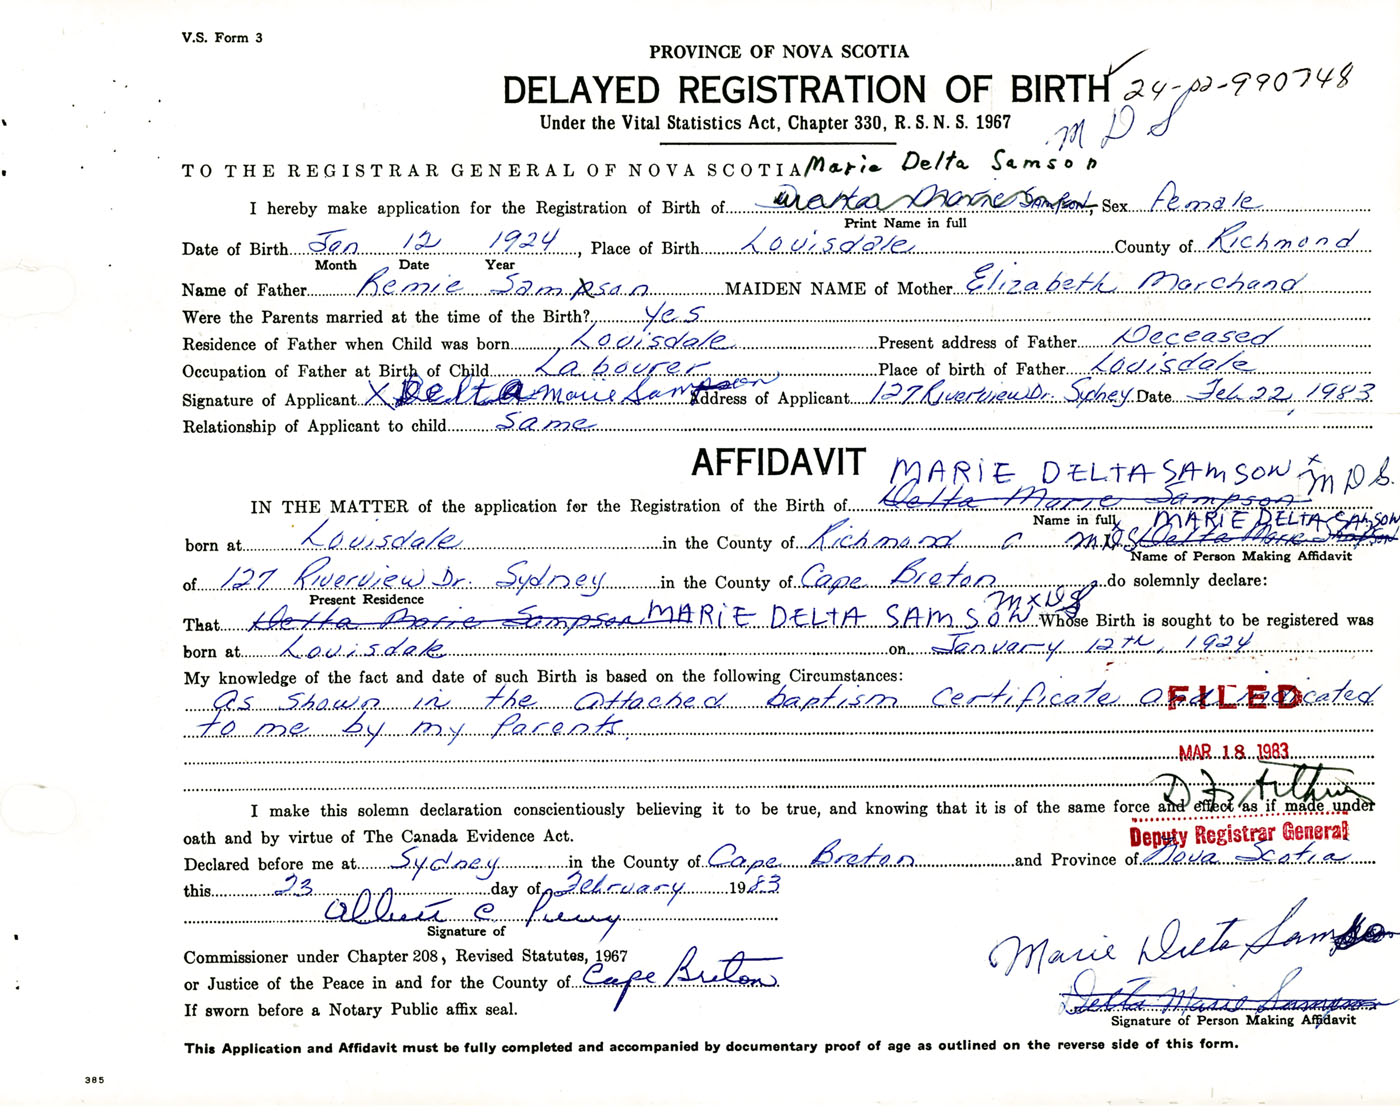 V.S. Form 3
PROVINCE OF NOVA SCOTIA
DELAYED REGISTRATION OF BIRTH 24-02-990748
Under the Vital Statistics Act, Chapter 330, R.S.N.S. 1967
M D S
TO THE REGISTRAR GENERAL OF NOVA SCOTIA Marie Delta Samson
I hereby make application for the Registration of Birth of Marie Sampson, Sex Female
Print Name in full
Date of Birth Jan 12 1924, Place of Birth Louisdale County of Richmond
Month Date Year
Name of Father Remie Samson MAIDEN NAME of Mother Elizabeth Marchand
Were the Parents married at the time of the Birth? Yes
Residence of Father when Child was born Louisdale Present address of Father Deceased
Occupation of Father at Birth of Child Labourer Place of birth of Father Louisdale
Signature of Applicant X Delta Marie Sampson Address of Applicant 127 Riverview Dr. Sydney Date Feb 22, 1983
Relationship of Applicant to child Same
AFFIDAVIT MARIE DELTA SAMSON x M D S.
IN THE MATTER of the application for the Registration of the Birth of Delta Marie Sampson
Name in full MARIE DELTA SAMSON
born at Louisdale in the County of Richmond M.D.S Delta Marie Sampson
Name of Person Making Affidavit
of 127 Riverview Dr. Sydney in the County of Cape Breton do solemnly declare:
Present Residence
M x D S
That Delta Marie Sampson MARIE DELTA SAMSON Whose Birth is sought to be registered was
born at Louisdale on January 12th, 1924
My knowledge of the fact and date of such Birth is based on the following Circumstances:
As shown in the attached baptism certificate and indicated
FILED
to me by my Parents.
MAR 18 1983
I make this solemn declaration conscientiously believing it to be true, and knowing that it is of the same force and effect as if made under
oath and by virtue of The Canada Evidence Act.
Deputy Registrar General
Declared before me at Sydney in the County of Cape Breton and Province of Nova Scotia
this 23 day of February 1983
Albert C
Signature of
Commissioner under Chapter 208, Revised Statutes, 1967
Marie Delta Samson
or Justice of the Peace in and for the County of Cape Breton
Delta Marie Sampson
If sworn before a Notary Public affix seal.
Signature of Person Making Affidavit
This Application and Affidavit must be fully completed and accompanied by documentary proof of age as outlined on the reverse side of this form.
385